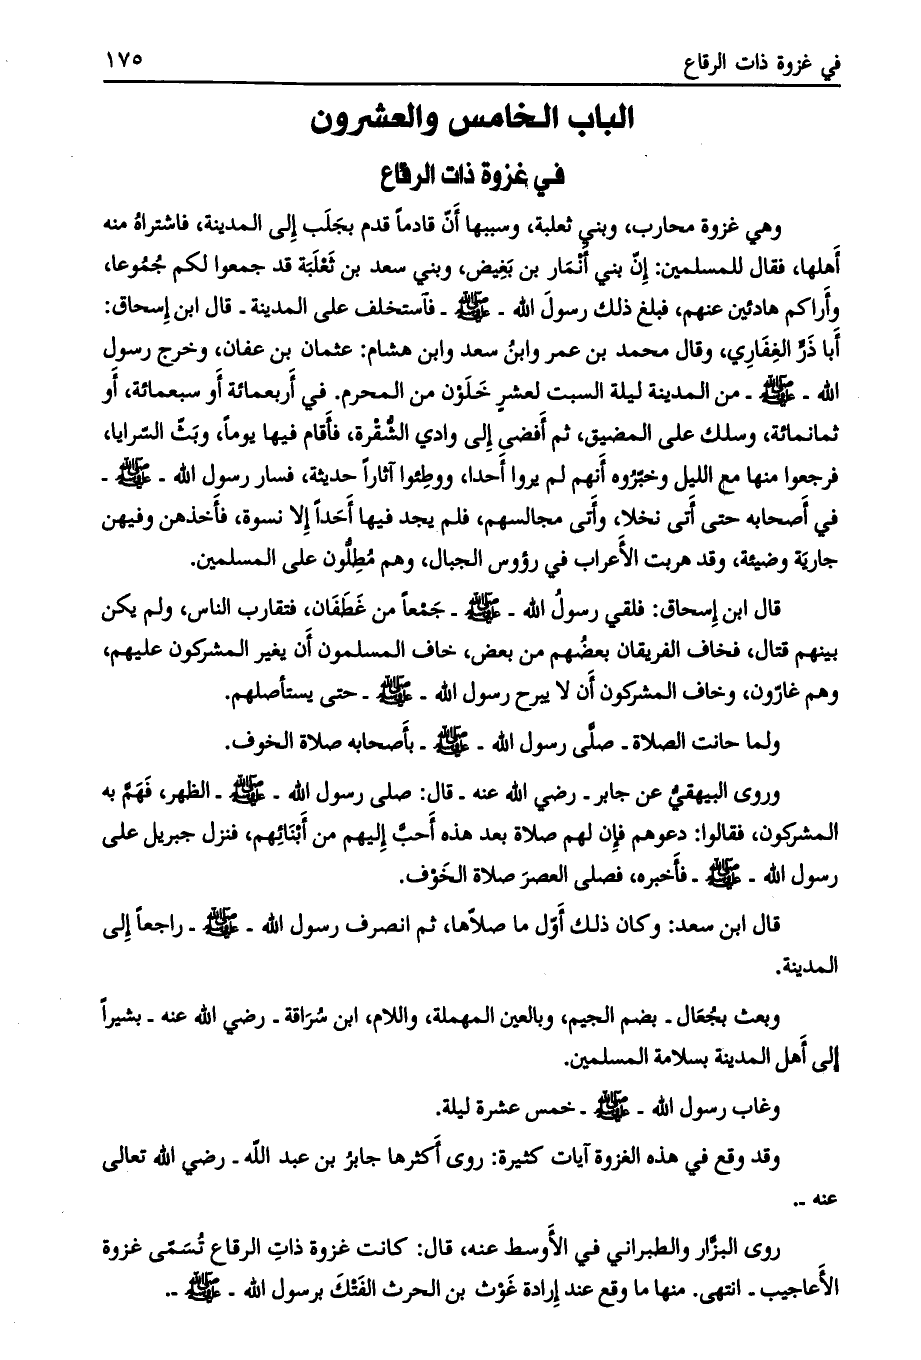 في غزوة ذات الرقاع ١٧٥
الباب الخامس والعشرون
في غزوة ذات الرقاع
وهي غزوة محارب، وبني ثعلبة، وسببها أَنّ قادماً قدم بجَلَب إلى المدينة، فاشتراهُ منه
أهلها، فقال للمسلمين: إِنّ بني أَنْمَار بن بَغِيض، وبني سعد بن ثَعْلَبَة قد جمعوا لكم جُمُوعا،
وأَراكم هادئين عنهم، فبلغ ذلك رسولَ الله ـ ﷺ ـ فاَستخلف على المدينة ـ قال ابن إسحاق:
أبا ذَرّ الغِفَاري، وقال محمد بن عمر وابنُ سعد وابن هشام: عثمان بن عفان، وخرج رسول
الله ـ ﷺ ـ من المدينة ليلة السبت لعشرٍ خَلَوْن من المحرم. في أَربعمائة أَو سبعمائة، أَو
ثمانمائة، وسلك على المضيق، ثم أَفضى إلى وادي الشُّقْرة، فأَقام فيها يوماً، وبَثّ السّرايا،
فرجعوا منها مع الليل وخبّرُوه أَنهم لم يروا أَحدا، ووطِئوا آثاراً حديثة، فسار رسول الله ـ ﷺ ـ
في أَصحابه حتى أَتى نخلا، وأَتى مجالسهم، فلم يجد فيها أَحَداً إِلا نسوة، فأَخذهن وفيهن
جاريَة وضيئة، وقد هربت الأَعراب في رؤوس الجبال، وهم مُطِلُّون على المسلمين.
قال ابن إِسحاق: فلقي رسولُ الله ـ ﷺ ـ جَمْعاً من غَطَفَان، فتقارب الناس، ولم يكن
بينهم قتال، فخاف الفريقان بعضُهم من بعض، خاف المسلمون أَن يغير المشركون عليهم،
وهم غارّون، وخاف المشركون أَن لا يبرح رسول الله ـ ﷺ ـ حتى يستأصلهم.
ولما حانت الصلاة ـ صلَّى رسول الله ـ ﷺ ـ بأَصحابه صلاة الخوف.
وروى البيهقيُّ عن جابر ـ رضي الله عنه ـ قال: صلى رسول الله ـ ﷺ ـ الظهر، فَهَمَّ به
المشركون، فقالوا: دعوهم فإِن لهم صلاة بعد هذه أَحبَّ إِليهم من أَبْنَائِهم، فنزل جبريل على
رسول الله ـ ﷺ ـ فأَخبره، فصلى العصرَ صلاة الخَوْف.
قال ابن سعد: وكان ذلك أَوّل ما صلاّها، ثم انصرف رسول الله ـ ﷺ ـ راجعاً إِلى
المدينة.
وبعث بجُعَال ـ بضم الجيم، وبالعين المهملة، واللام، ابن سُرَاقة ـ رضي الله عنه ـ بشيراً
إِلى أَهل المدينة بسلامة المسلمين.
وغاب رسول الله ـ ﷺ ـ خمس عشرة ليلة.
وقد وقع في هذه الغزوة آيات كثيرة: روى أَكثرها جابرُ بن عبد اللّه ـ رضي الله تعالى
عنه ـ.
روى البزَّار والطبراني في الأَوسط عنه، قال: كانت غزوة ذاتِ الرقاع تُسَمّى غزوة
الأَعاجيب ـ انتهى. منها ما وقع عند إِرادة غَوْث بن الحرث الفَتْكَ برسول الله ـ ﷺ ـ.